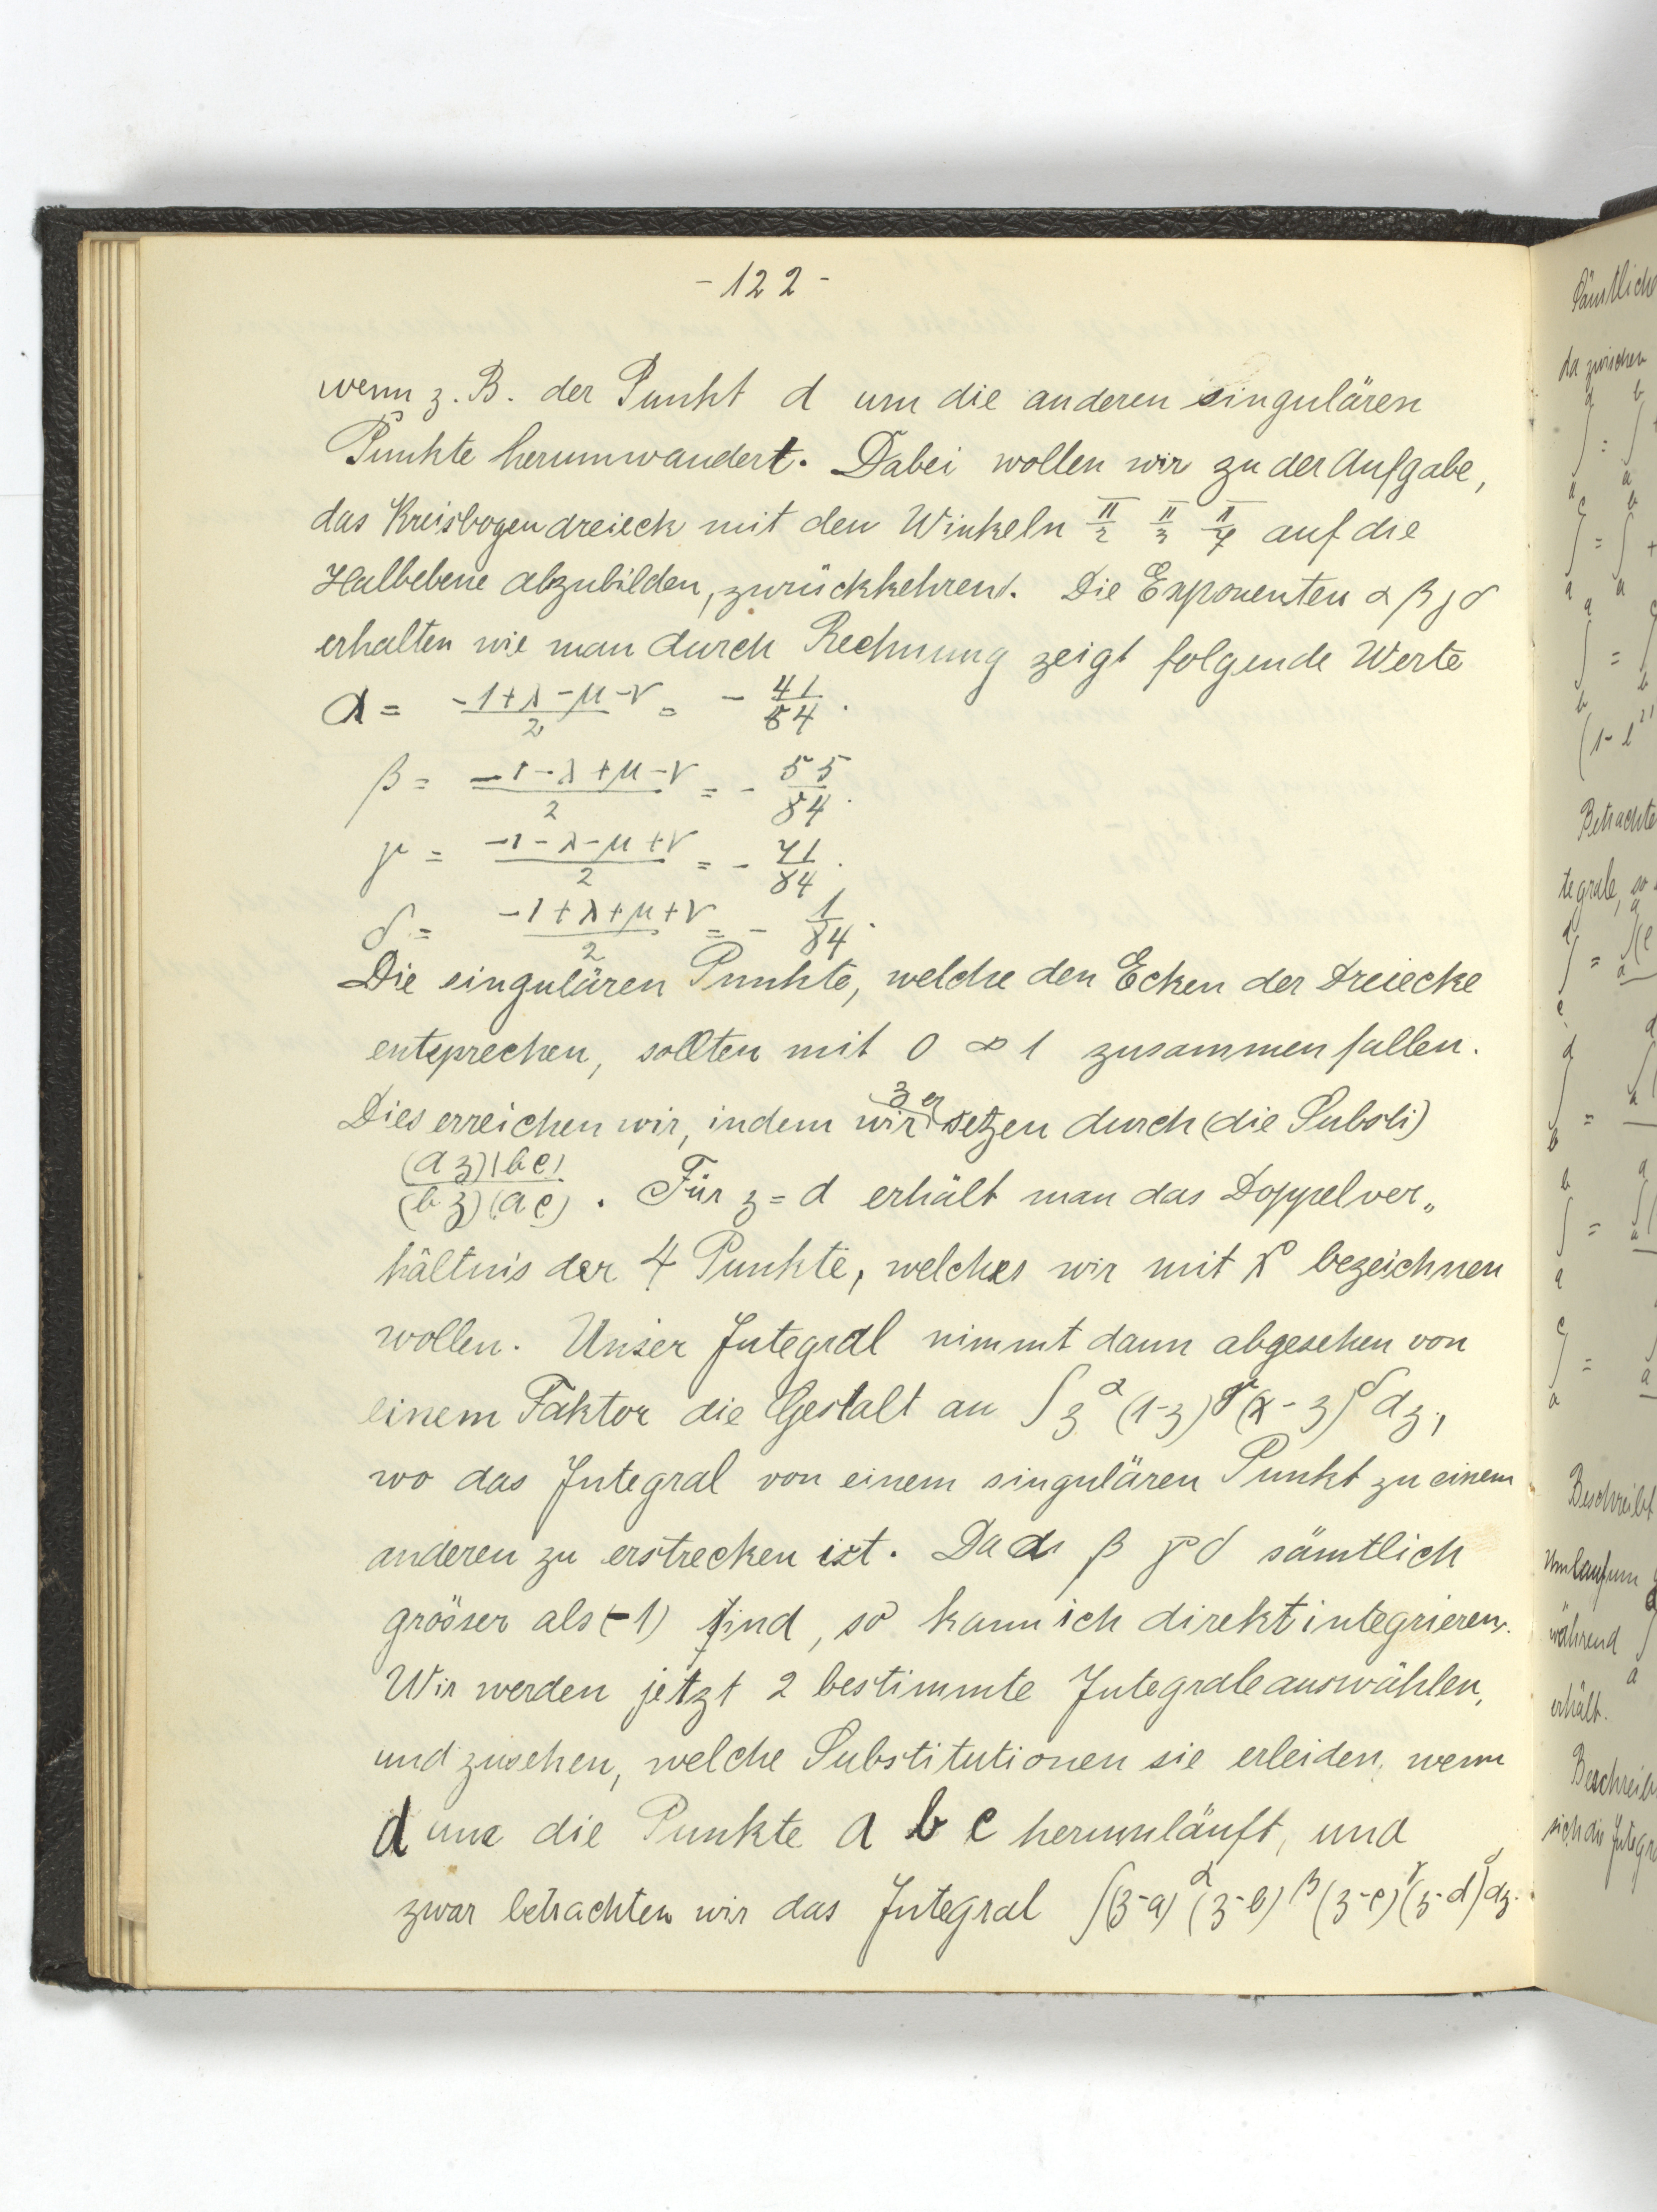 - 122 -
wenn z. B. der Punkt d um die anderen singulären
Punkte herumwandert. Dabei wollen wir zu der Aufgabe,
das Kreisbogendreieck mit den Winkeln π/2 π/3 π/7 auf die
Halbebene abzubilden, zurückkehren. Die Exponenten α β γ δ
erhalten wie man durch Rechnung zeigt folgende Werte
α = (-1+λ-μ-ν)/2 = - 41/84.
β = (-1-λ+μ-ν)/2 = - 55/84.
γ = (-1-λ-μ+ν)/2 = - 71/84.
δ = (-1+λ+μ+ν)/2 = - 1/84.
Die singulären Punkte, welche den Ecken der Dreiecke
entsprechen, sollten mit 0 ∞ 1 zusammenfallen.
Dies erreichen wir, indem wir z ersetzen durch (die Substi)
(a z)(b c)/(b z)(a c) . Für z = d erhält man das Doppelver„
hältnis der 4 Punkte, welches wir mit x bezeichnen
wollen. Unser Integral nimmt dann abgesehen von
einem Faktor die Gestalt an ∫ z^α (1-z)^γ (x-z)^δ dz,
wo das Integral von einem singulären Punkt zu einem
anderen zu erstrecken ist. Da α β γ δ sämtlich
grösser als (-1) sind, so kann ich direkt integrieren.
Wir werden jetzt 2 bestimmte Integrale auswählen,
und zusehen, welche Substitutionen sie erleiden, wenn
d um die Punkte a b c herumläuft, und
zwar betrachten wir das Integral ∫(z-a)^α (z-b)^β (z-c)^γ (z-d)^δ dz.
Sämtliche
da zwischen
Betrachte
tegrale, so
Beschreibt
Umlauf um
während
erhält.
Beschreib
sich die Integra